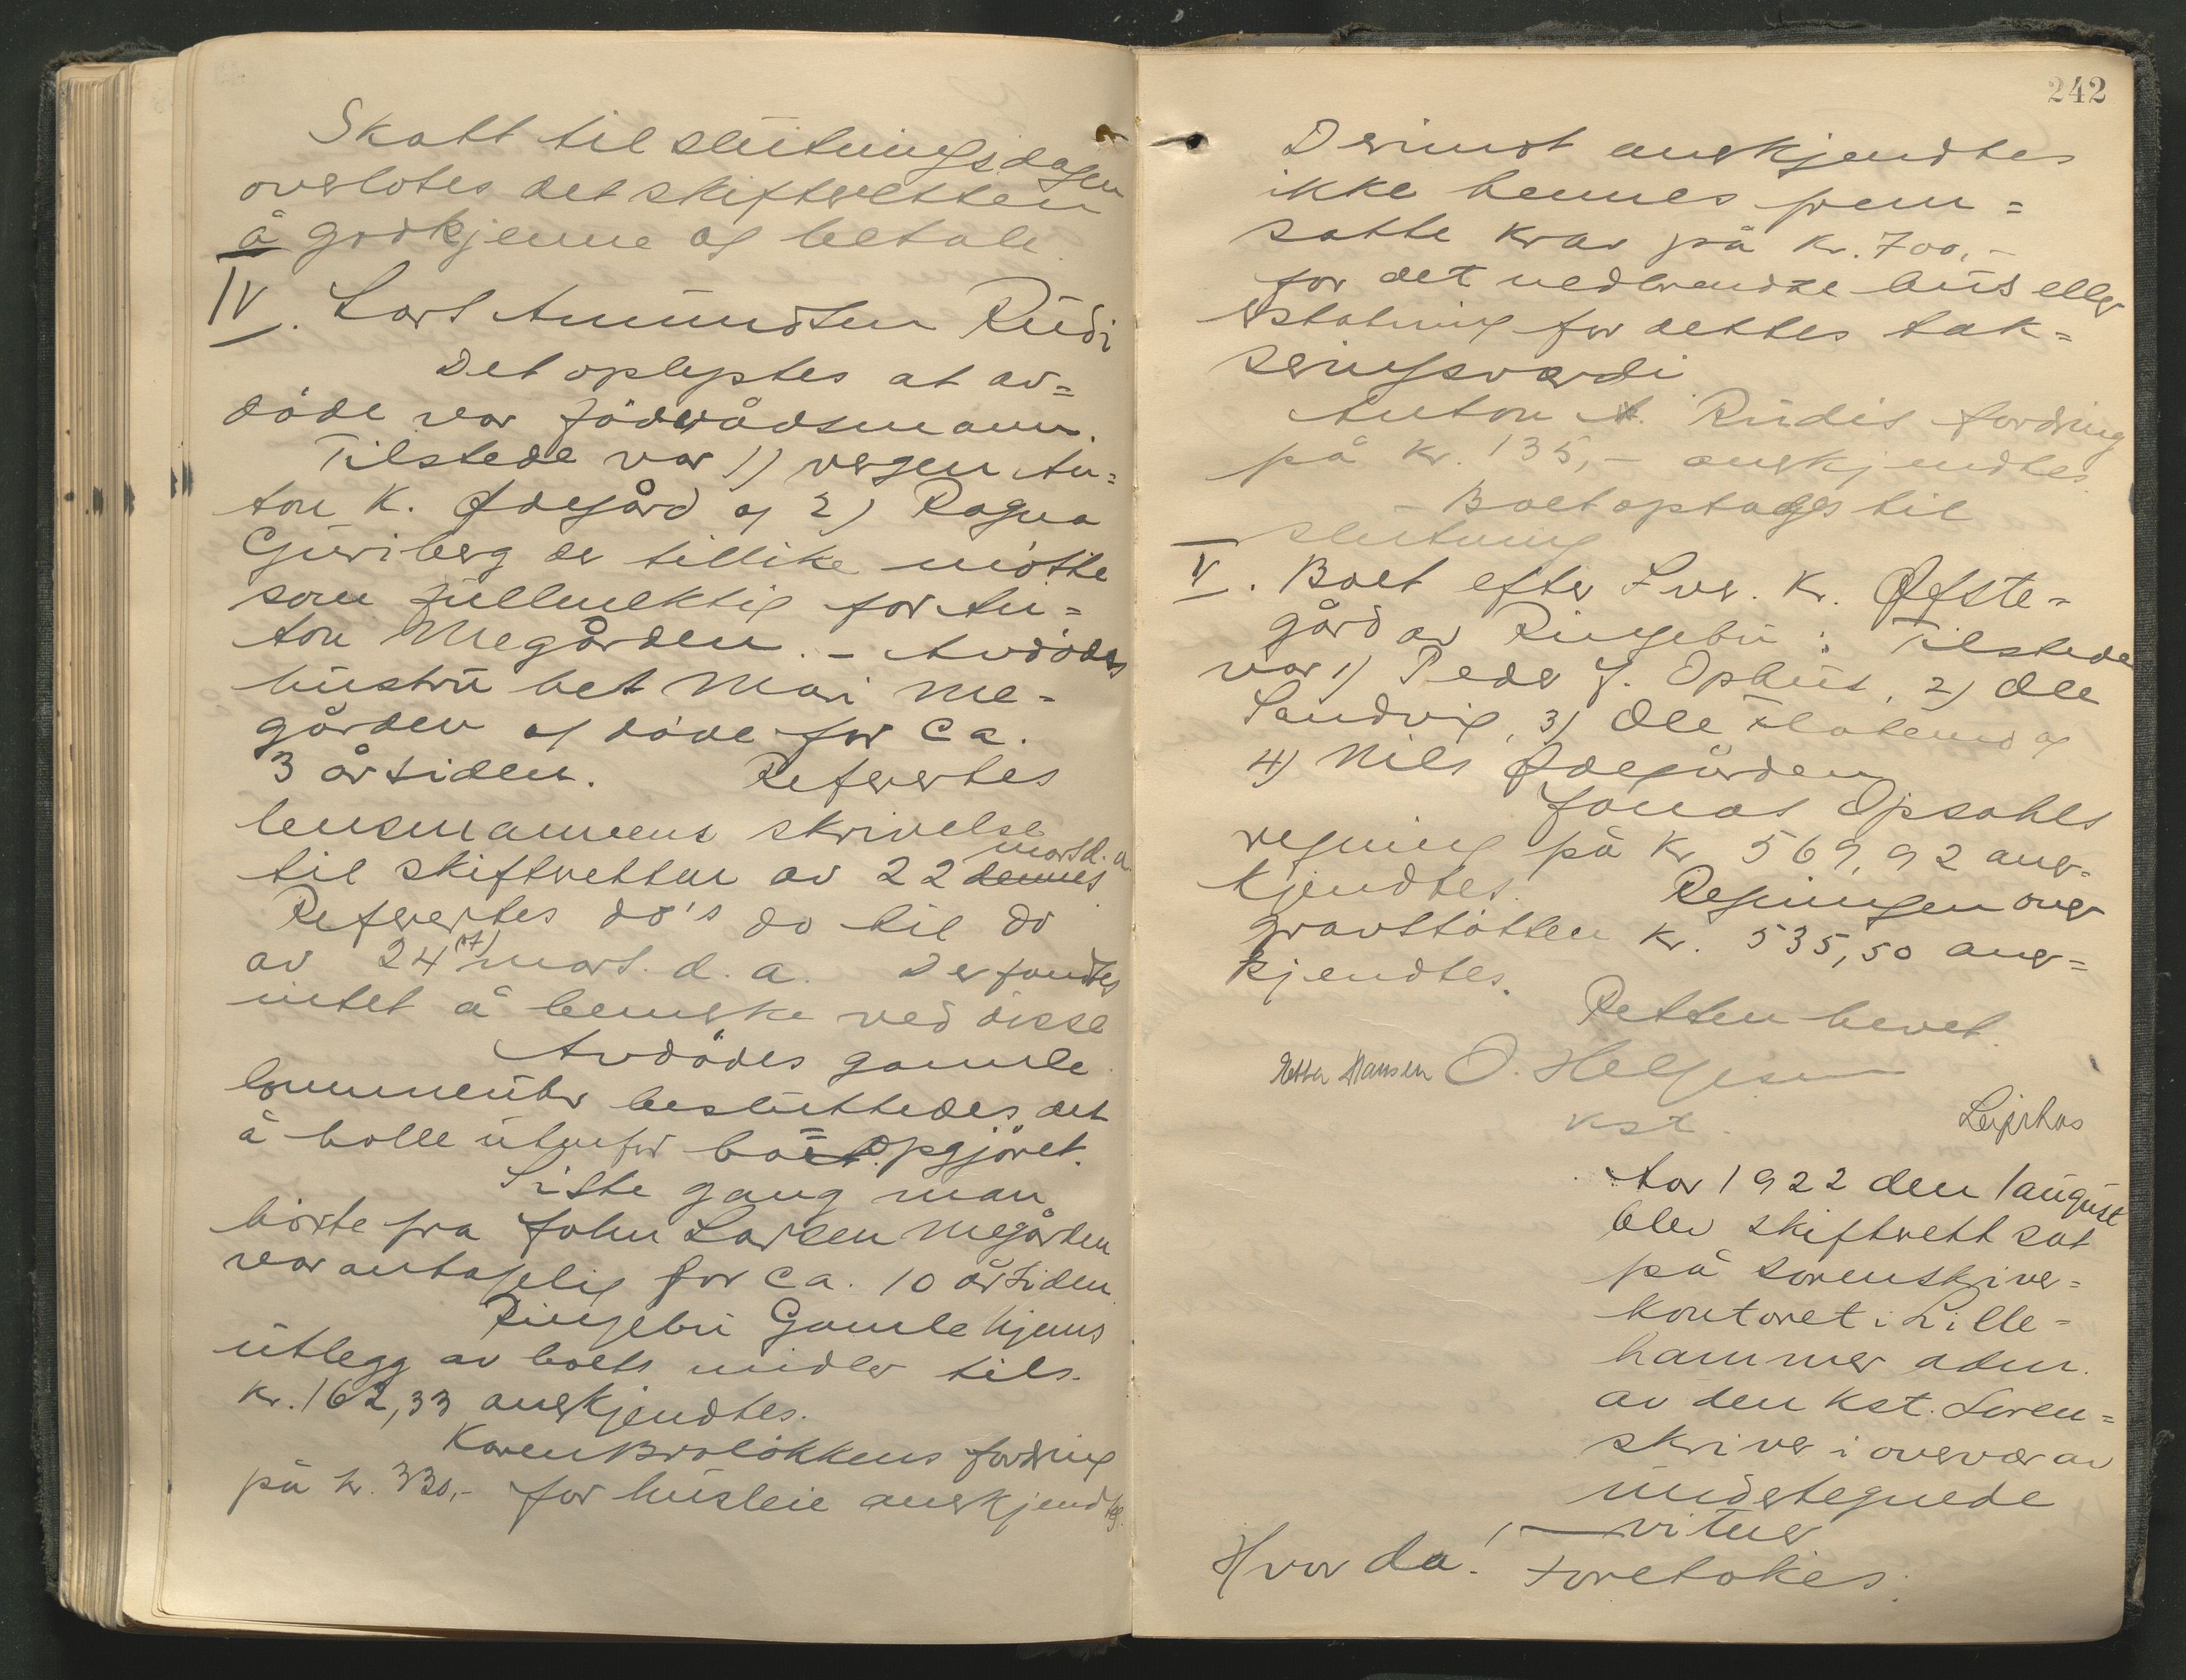 Skatt til slutningsdagen
overlotes det skifteretten
å godkjenne og betale.
IV. Lars Amundsen Rudi
Det oplystes at av=
döde var föderådsmann.
Tilstede var 1) vergen An=
ton K. Ødegård og 2) Ragna
Guriberg der tillike mötte
som fullmektig for An=
ton Megården. - Avdödes
hustru het Mari Me=
gården og döde for ca.
3 år siden. Refertes
lensmannens skrivelse
til skifteretten av 22 dennes mars d. a.
Refertes do's do til do
av 24 mars. d. a. Der fandtes
intet å bemerke ved disse
Avdödes gamle
lommeur besluttedes det
å holde utenfor boopgjöret.
Siste gang man
hörte fra John Larsen Megården
var antagelig for ca. 10 år siden.
Ringebu Gamlehjems
utlegg av boets midler tils.
kr. 162,33 anerkjendtes.
Karen Brolökkens fordring
på kr. 330,- for husleie anerkjendtes.
242
Derimot anerkjendtes
ikke hennes frem=
satte krav på kr. 700,-
for det nedbrendte hus eller
erstatning for dettes tak=
seringsværdi
Anton A. Rudis fordring
på kr. 135,- anerkjendtes.
- Boet optages til
slutning
V. Boet efter Iver K. Øfste=
gård av Ringebu: Tilstede
var 1) Peder J. Ophus, 2) Ole
Sandvig, 3) Ole Flatemo og
4) Nils Ødegården
Jonas Opsahls
regning på kr 569,92 aner=
kjendtes. Regningen over
gravstötten kr. 535,50 aner=
kjendtes.
Retten hevet.
Hansen O. Helgesen
kst.
Aar 1922 den 1 august
blev skifterett sat
på sorenskriver=
kontoret i Lille=
hammer adm.
av den kst. Soren=
skriver i overvær av
undertegnede
vitner
Hvor da! Foretokes: